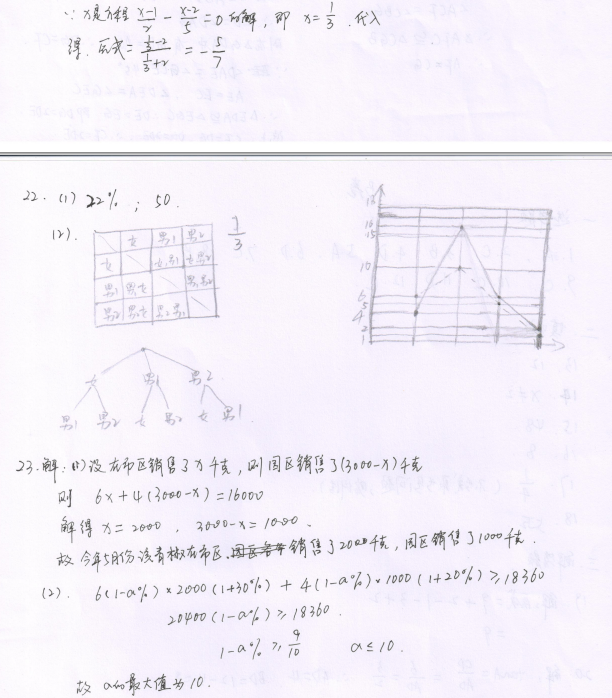 ∵ x是方程 (x-1)/2 - (x-2)/5 = 0 的解, 即 x = 1/3. 代入
得: 原式 = (1/3 - 2)/(1/3 + 2) = -5/7
22. (1) 22% ; 50.
(2).
1/3
女 男1 男2
女 女男1 女男2
男1 男1女 男1男2
男2 男2女 男2男1
女 男1 男2
男1 男2 女 男2 女 男1
18
16
15
10
6
5
4
2
1
23. 解: (1) 设在市区销售了x千克, 则园区销售了(3000-x)千克
则 6x+4(3000-x)=16000
解得 x=2000 . 3000-x=1000 .
故 今年5月份该青椒在市区销售了2000千克, 园区销售了1000千克.
(2). 6(1-a%)×2000(1+30%) + 4(1-a%)×1000(1+20%) ≥ 18360
20400(1-a%) ≥ 18360.
1-a% ≥ 9/10 a≤10.
故 a的最大值为10.